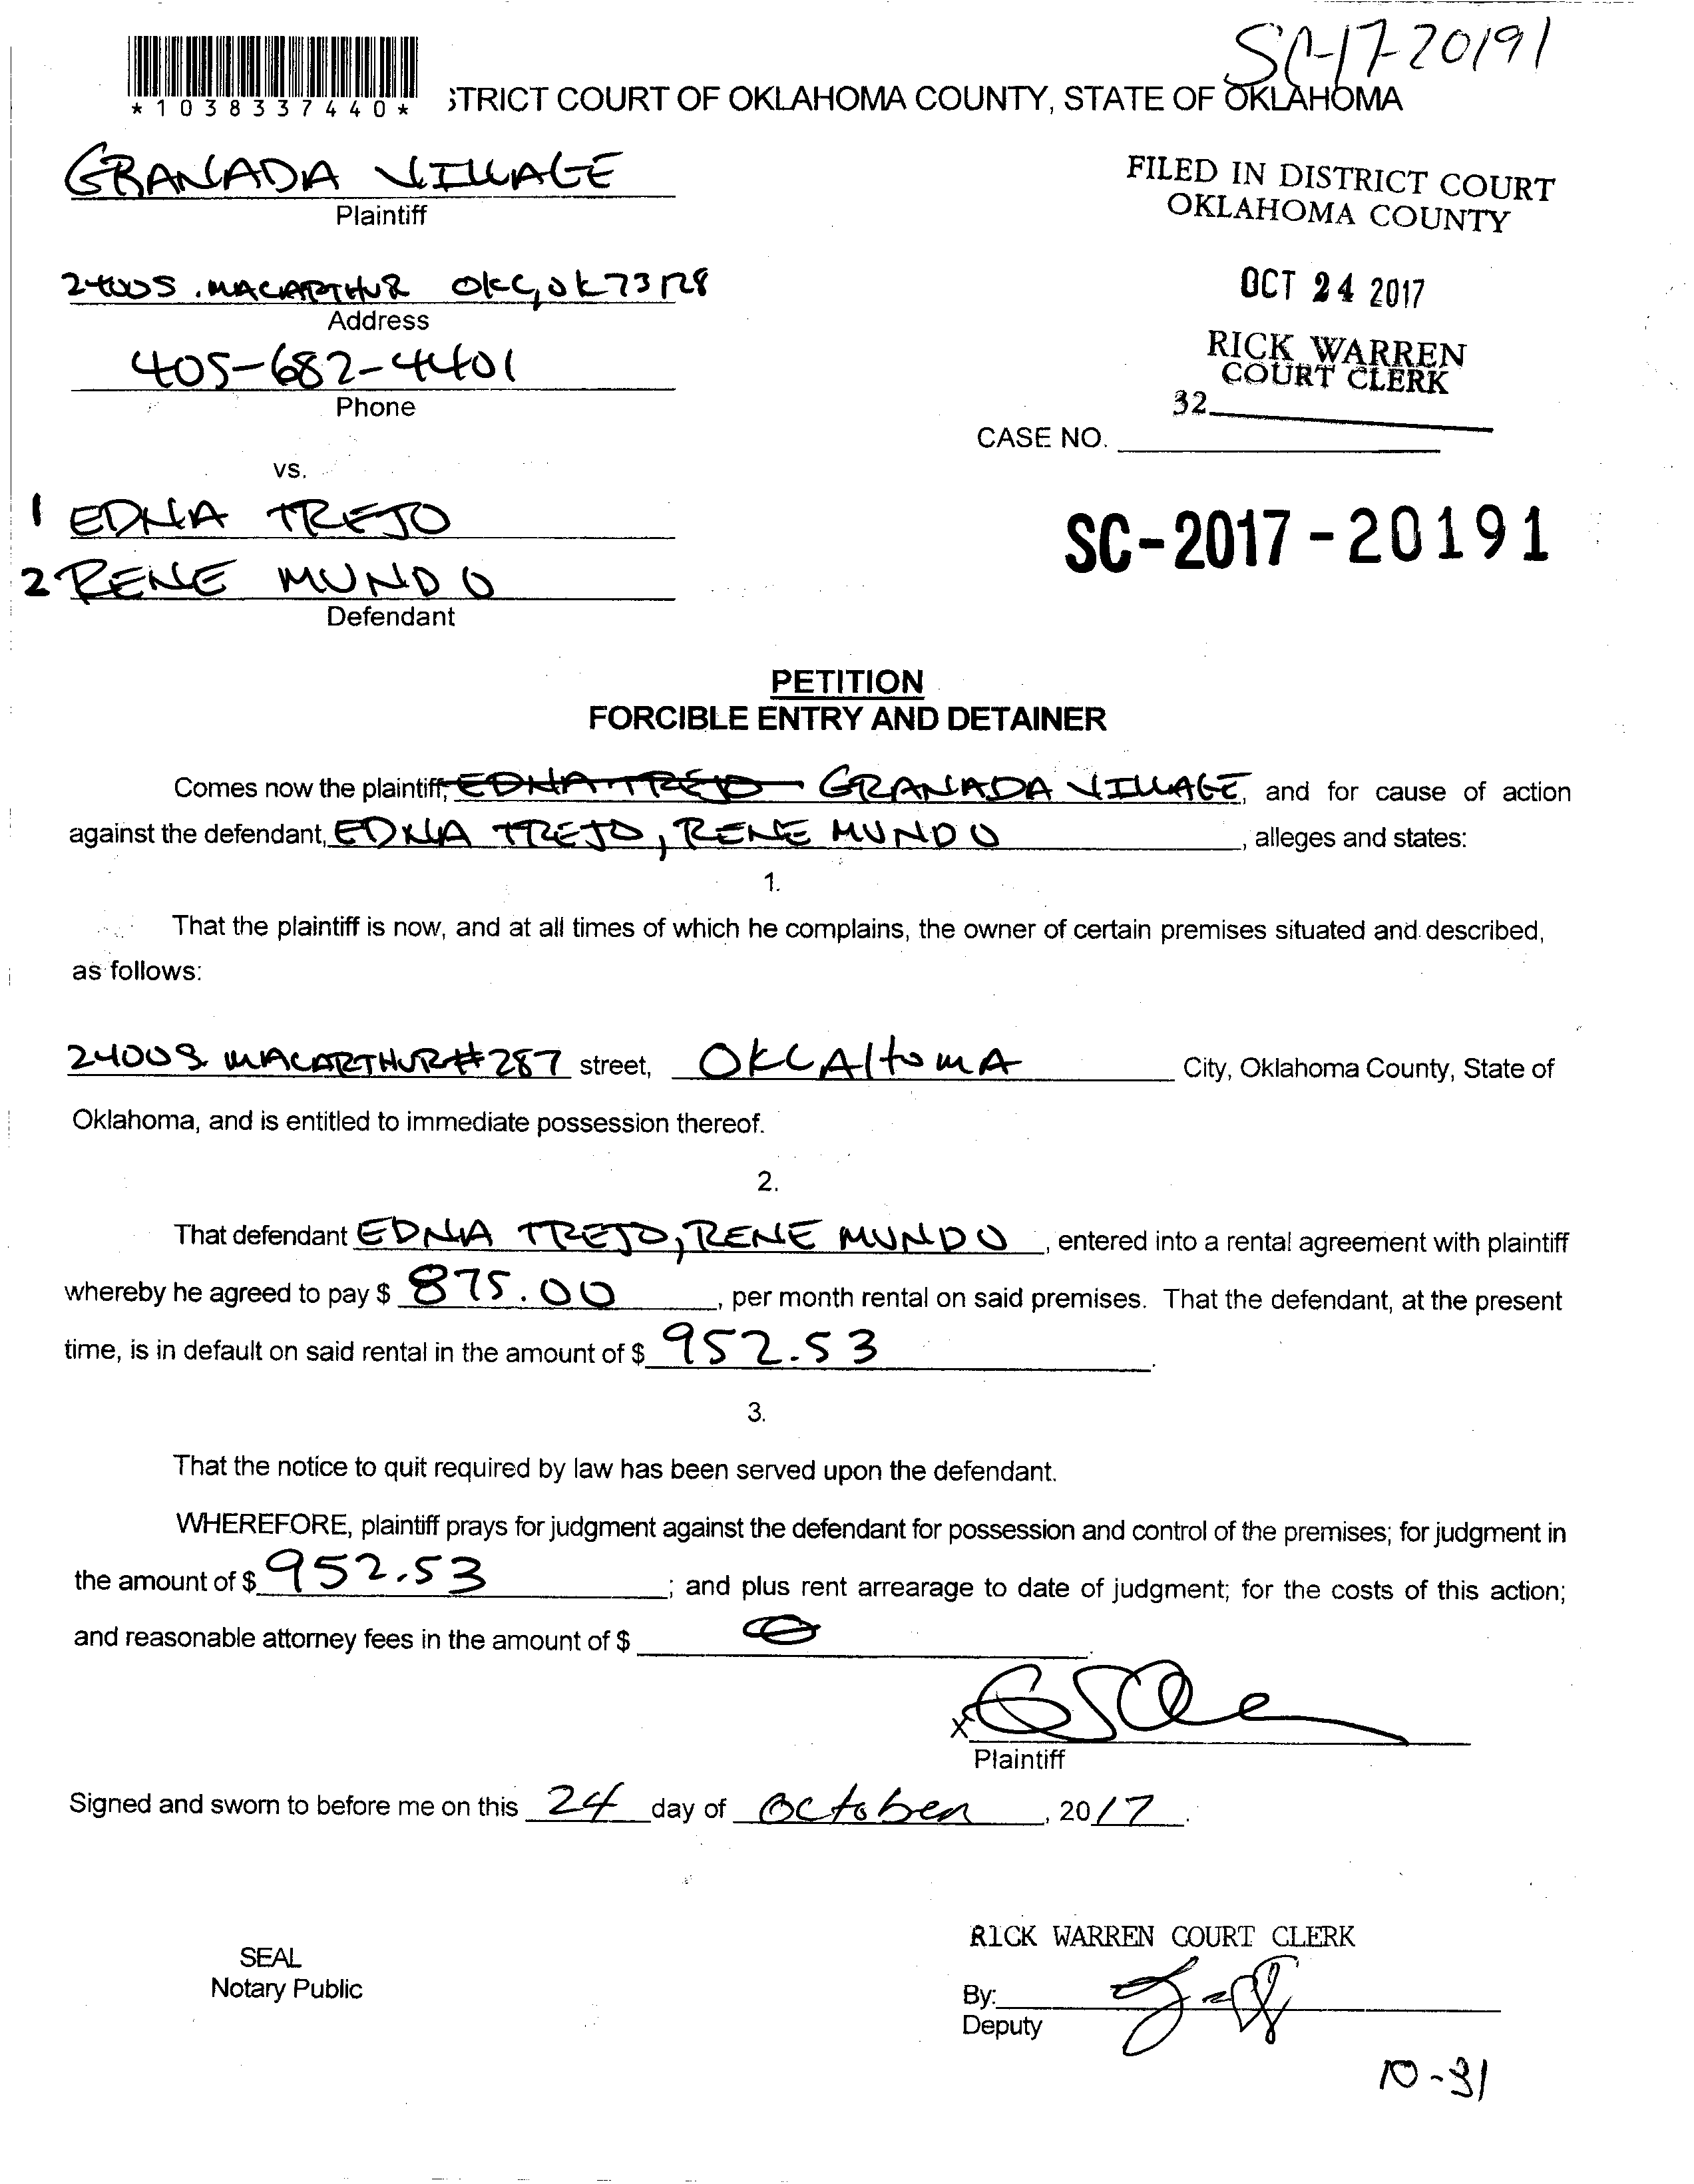 SC-17-20191
*1038337440*
STRICT COURT OF OKLAHOMA COUNTY, STATE OF OKLAHOMA
GRANADA VILLAGE
Plaintiff
FILED IN DISTRICT COURT
OKLAHOMA COUNTY
2400 S. MACARTHUR OKC, OK 73128
Address
OCT 24 2017
405-682-4401
Phone
RICK WARREN
COURT CLERK
32
CASE NO.
vs.
1 EDNA TREJO
2 RENE MUNDO
Defendant
SC-2017-20191
PETITION
FORCIBLE ENTRY AND DETAINER
Comes now the plaintiff, EDNA TREJO GRANADA VILLAGE, and for cause of action
against the defendant, EDNA TREJO, RENE MUNDO, alleges and states:
1.
That the plaintiff is now, and at all times of which he complains, the owner of certain premises situated and described,
as follows:
2400 S. MACARTHUR #287 street, OKLAHOMA City, Oklahoma County, State of
Oklahoma, and is entitled to immediate possession thereof.
2.
That defendant EDNA TREJO, RENE MUNDO, entered into a rental agreement with plaintiff
whereby he agreed to pay $ 875.00, per month rental on said premises. That the defendant, at the present
time, is in default on said rental in the amount of $ 952.53.
3.
That the notice to quit required by law has been served upon the defendant.
WHEREFORE, plaintiff prays for judgment against the defendant for possession and control of the premises; for judgment in
the amount of $ 952.53; and plus rent arrearage to date of judgment; for the costs of this action;
and reasonable attorney fees in the amount of $ 0.
X
Plaintiff
Signed and sworn to before me on this 24 day of October, 2017.
RICK WARREN COURT CLERK
SEAL
Notary Public
By:
Deputy
10-31